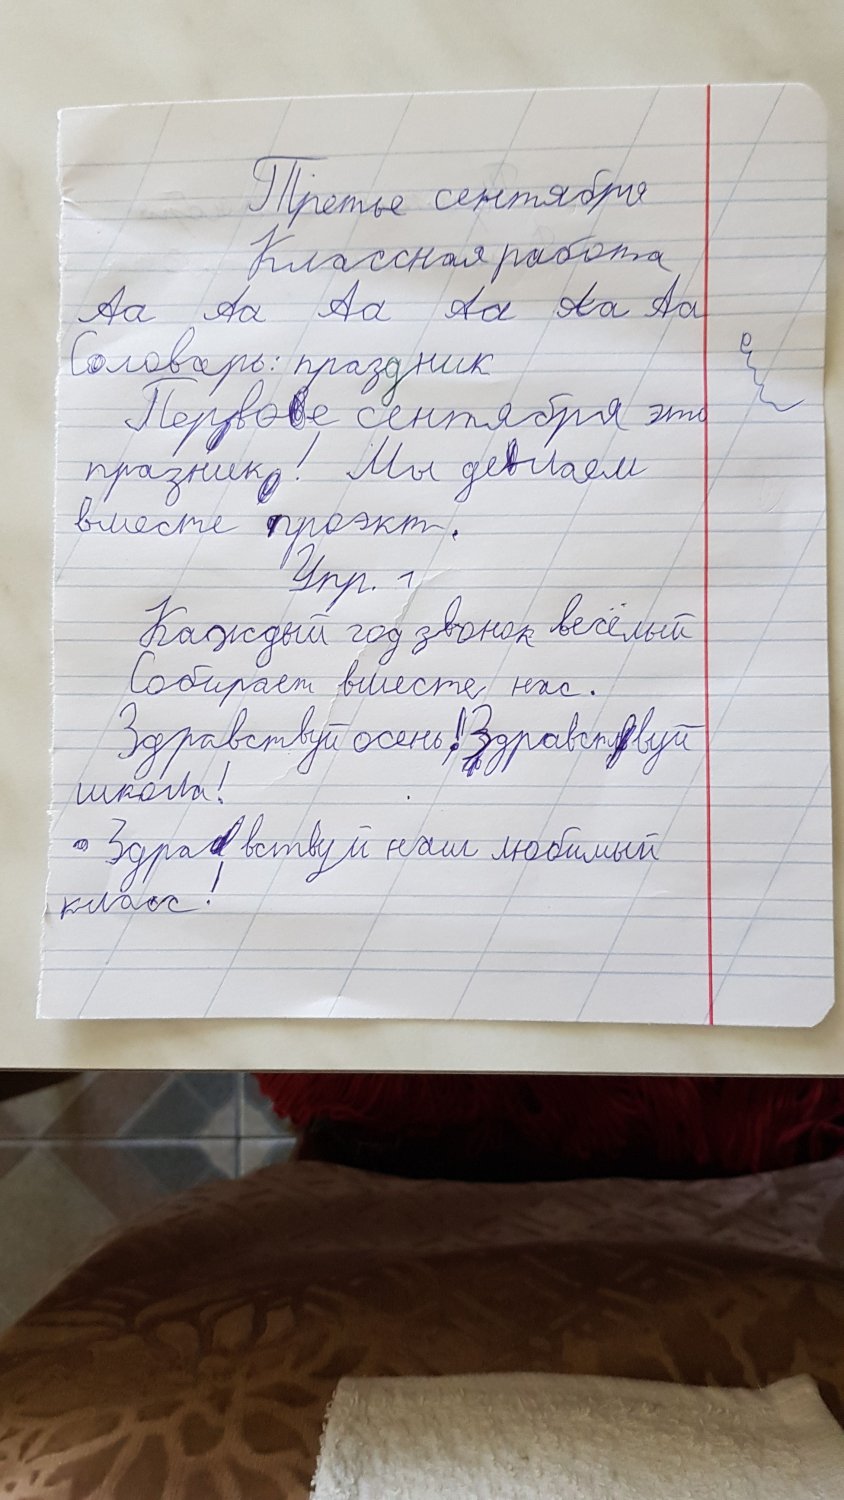 Третье сентября
Классная работа
Аа Аа Аа Аа Аа Аа
Соловарь: праздник
Первое сентября это
празник! Мы делаем
вместе проэкт.
Упр. 1
Каждый год звонок весёлый
Собирает вместе нас.
Здравствуй осень! Здравствуй
школа!
Здравствуй наш любимый
класс!